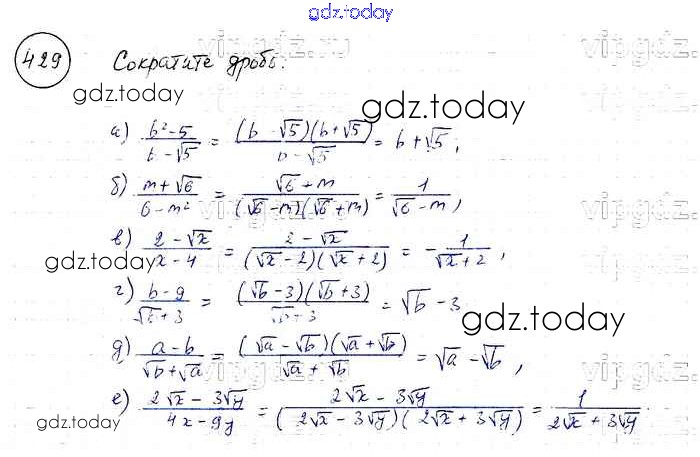 gdz.today
429 Сократите дробь. vipgdz.ru
gdz.today
gdz.today
а) (b²-5)/(b-√5) = ((b-√5)(b+√5))/(b-√5) = b+√5;
б) (m+√6)/(6-m²) = (√6+m)/((√6-m)(√6+m)) = 1/(√6-m),
в) (2-√x)/(x-4) = (2-√x)/((√x-2)(√x+2)) = -1/(√x+2),
gdz.today
г) (b-9)/(√b+3) = ((√b-3)(√b+3))/(√b+3) = √b-3
gdz.today
д) (a-b)/(√b+√a) = ((√a-√b)(√a+√b))/(√a+√b) = √a-√b,
е) (2√x-3√y)/(4x-9y) = (2√x-3√y)/((2√x-3√y)(2√x+3√y)) = 1/(2√x+3√y).
gdz.today